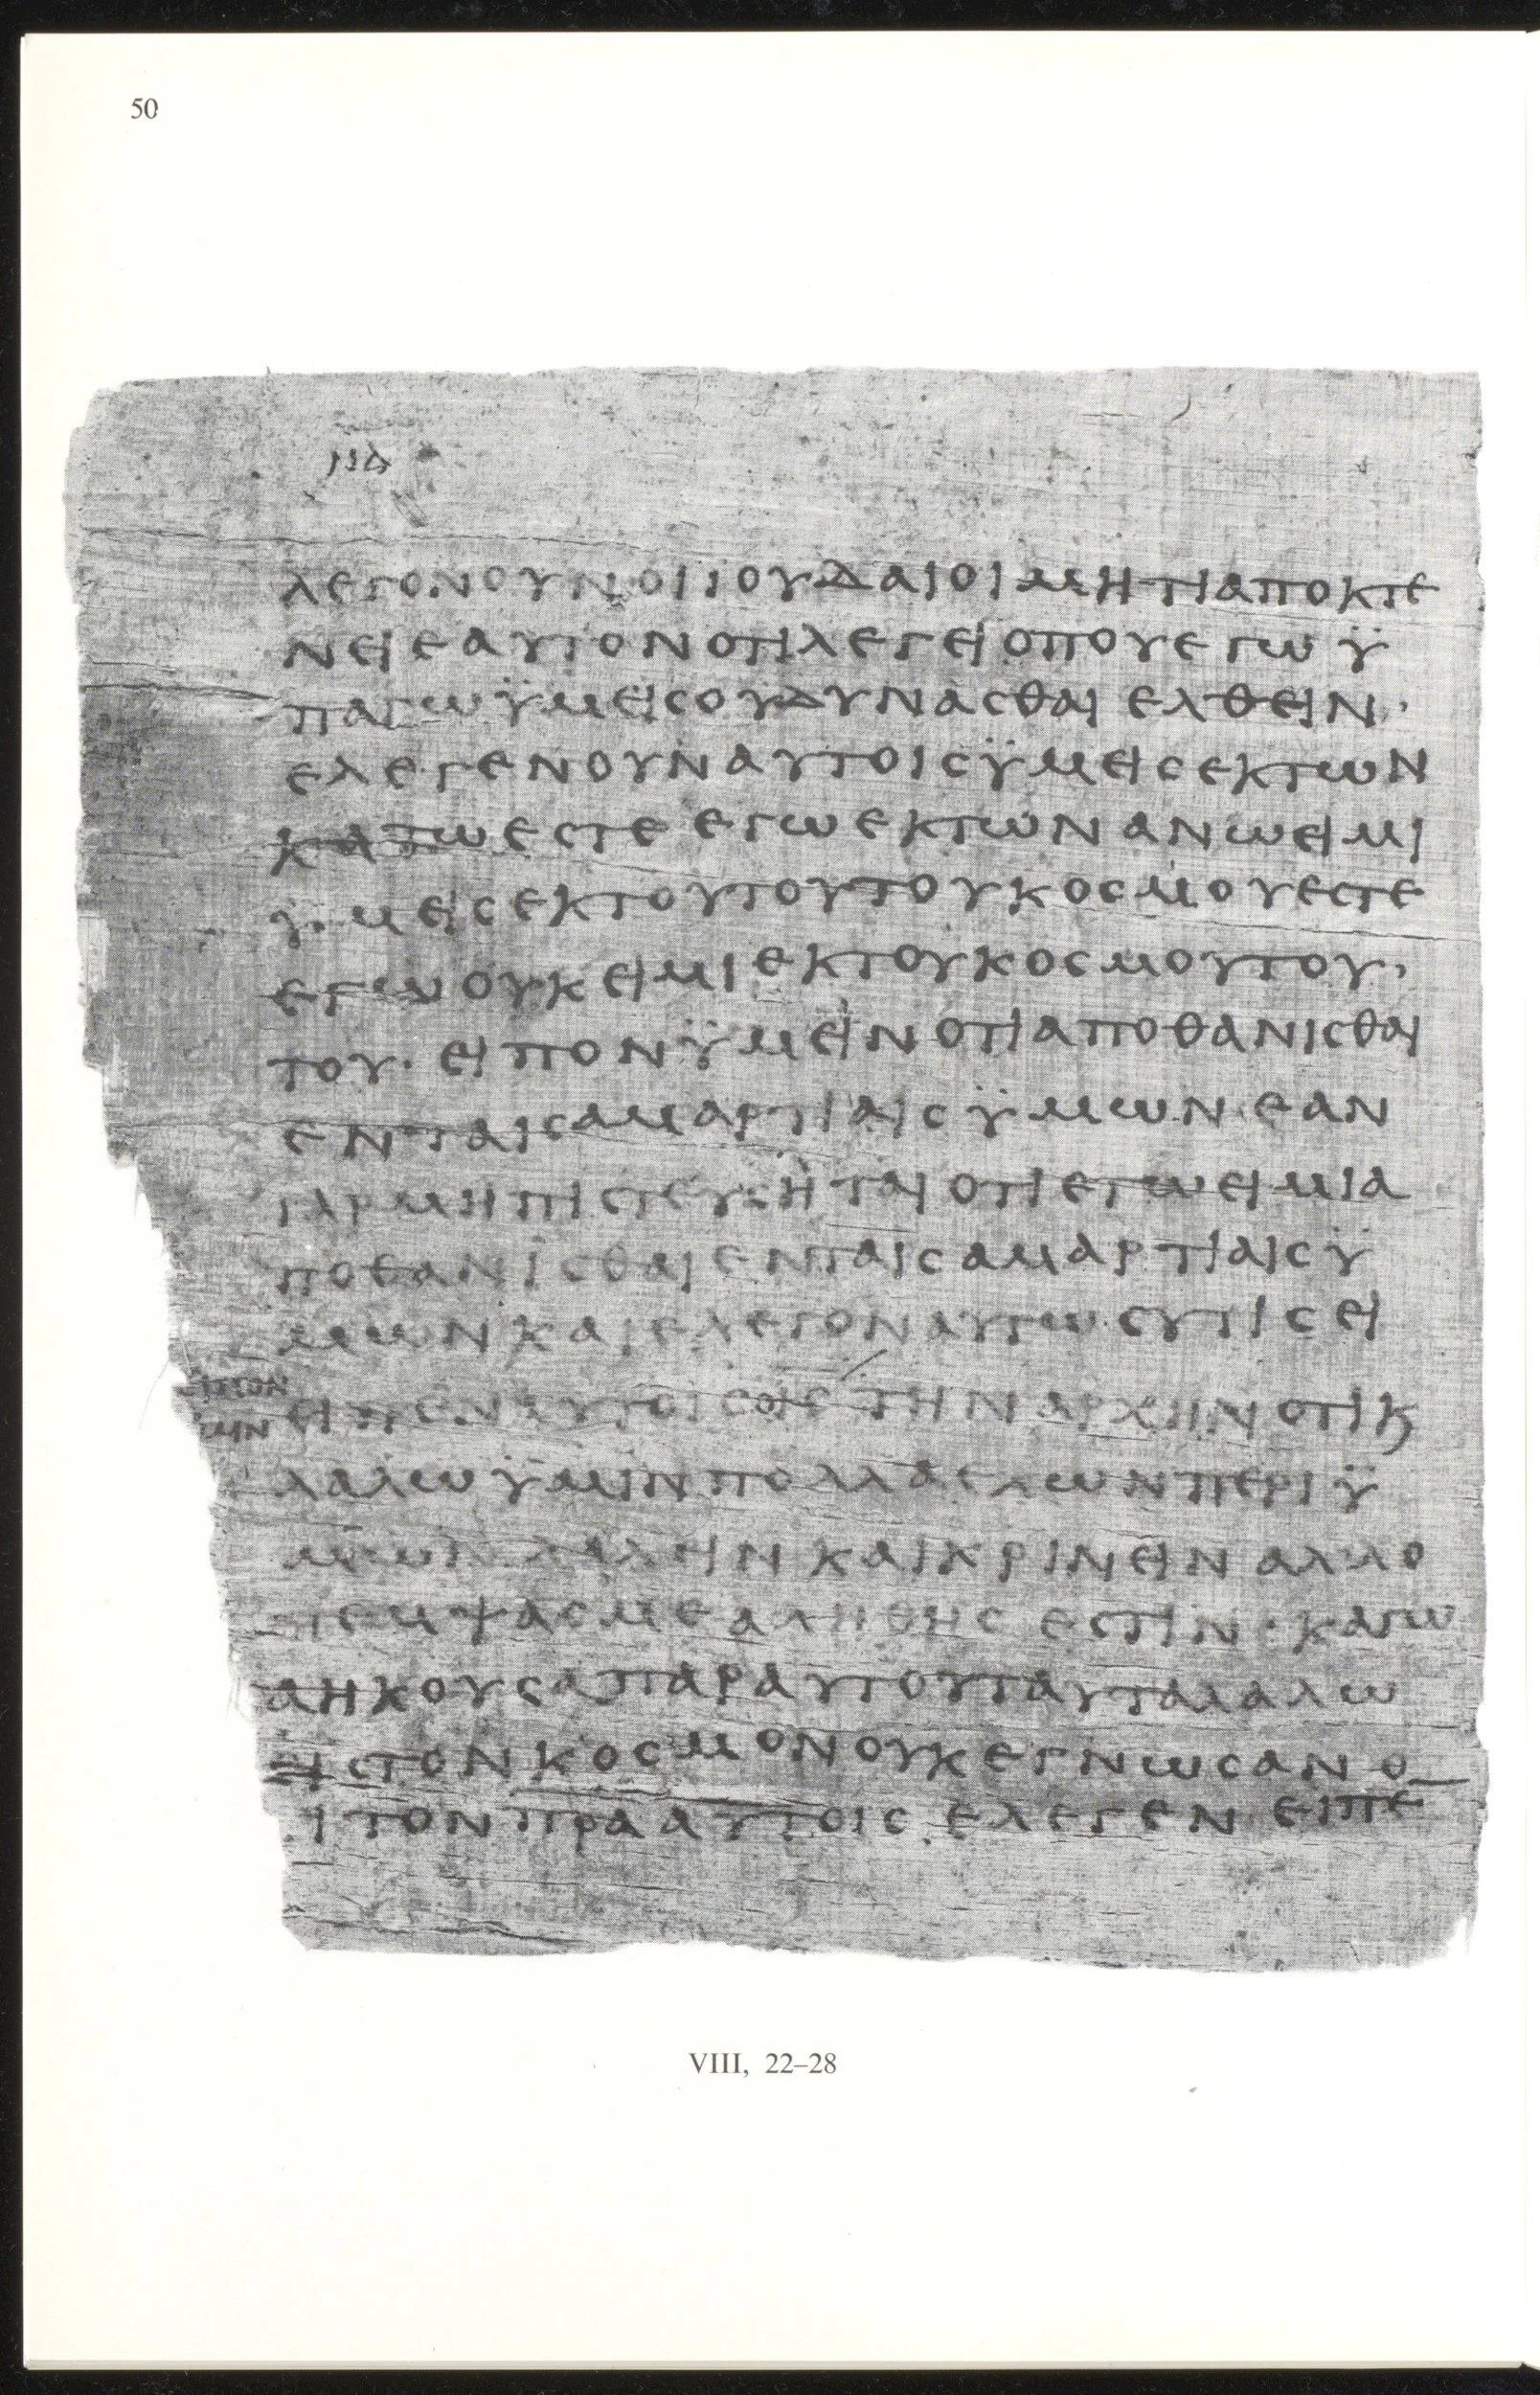 50
να
λεγονουνοιϊουδαιοιμητιαποκτε
νειεαυτονοτιλεγειοπουεγωϋ
παγωϋμειςουδυναςθαιελθειν·
ελεγενουναυτοιςϋμειςεκτων
κατωεςτεεγωεκτωνανωειμι
ϋμειςεκτουτουτουκοςμουεςτε
εγωουκειμιεκτουκοςμουτου,
του·ειπονϋμεινοτιαποθανιςθαι
ενταιςαμαρτιαιςϋμωνεαν
γαρμηπιςτευςηταιοτιεγωειμια
ποθανιςθαιενταιςαμαρτιαιςϋ
μωνκαιελεγοναυτω·ςυτιςει
ειπον
υμιν
ειπεναυτοιςοιε/τηναρχηνοτικ
λαλωϋμινπολλαεχωνπεριϋ
μωνλαλεινκαικρινειναλλο
πεμψαςμεαληθηςεςτιν·καγω
αηκουςαπαραυτουταυταλαλω
ειςτονκοςμονουκεγνωςανο
ιτονπρααυτοιςελεγενειπε
VIII, 22–28